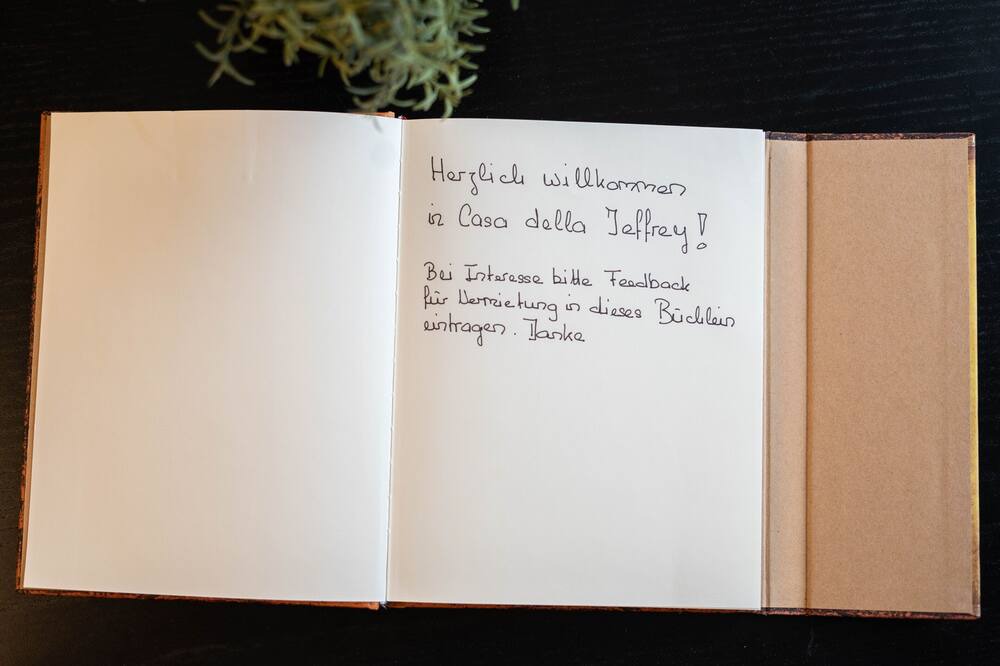 Herzlich willkommen
in Casa della Jeffrey!
Bei Interesse bitte Feedback
für Vermietung in dieses Büchlein
eintragen. Danke